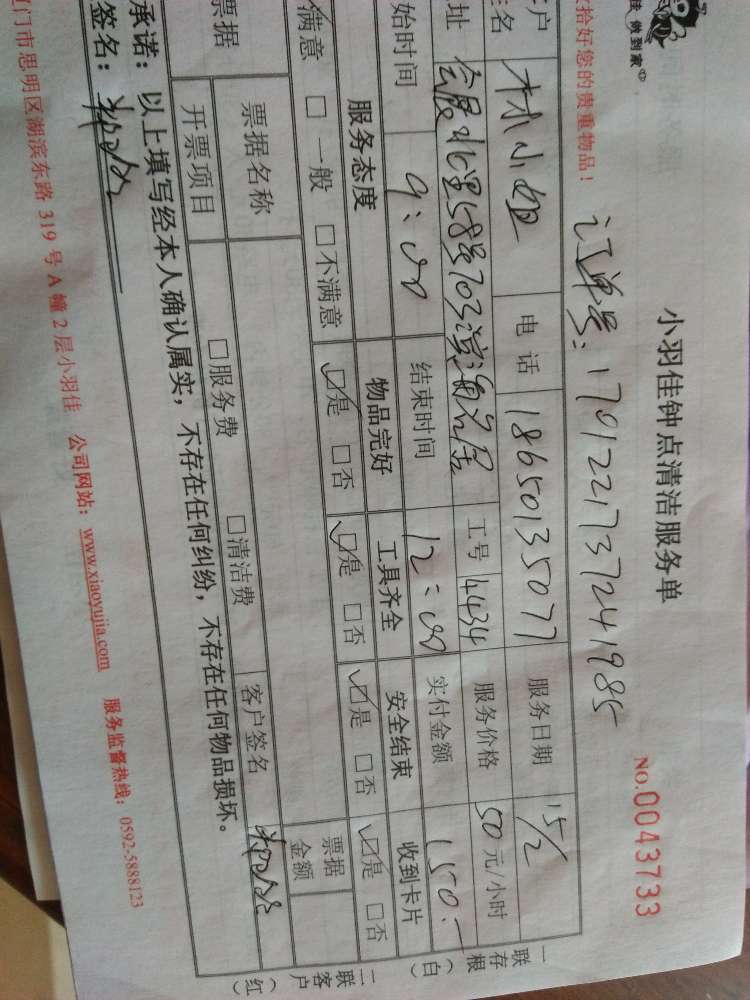 做到家
小羽佳钟点清洁服务单
NO.0043733
拾好您的贵重物品！
订单号：1701221737241985
户 林小姐 电话 18650135077 服务日期 15/2
址 会展北里58号703 工号 4434 服务价格 50元/小时
始时间 9:00 结束时间 12:00 实付金额 150.-
服务态度 物品完好 工具齐全 安全结束 收到卡片
满意 □一般 □不满意 □是 □否 □是 □否 □是 □否 □是 □否
票据 票据名称 客户签名 票据金额
开票项目 □服务费 □清洁费
承诺：以上填写经本人确认属实，不存在任何纠纷，不存在任何物品损坏。
签名：
门市思明区湖滨东路319号A幢2层小羽佳 公司网站：www.xiaoyujia.com 服务监督热线：0592-5888123
一联存根（白）
二联客户（红）